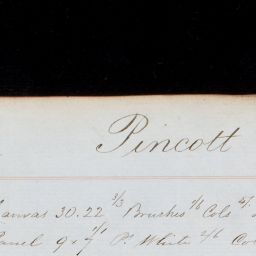 Pincott
Canvas 30.22 3/3 Brushes 1/6 Cols 4/
Panel 9 x 7 1/1 F. White 2/6 Co